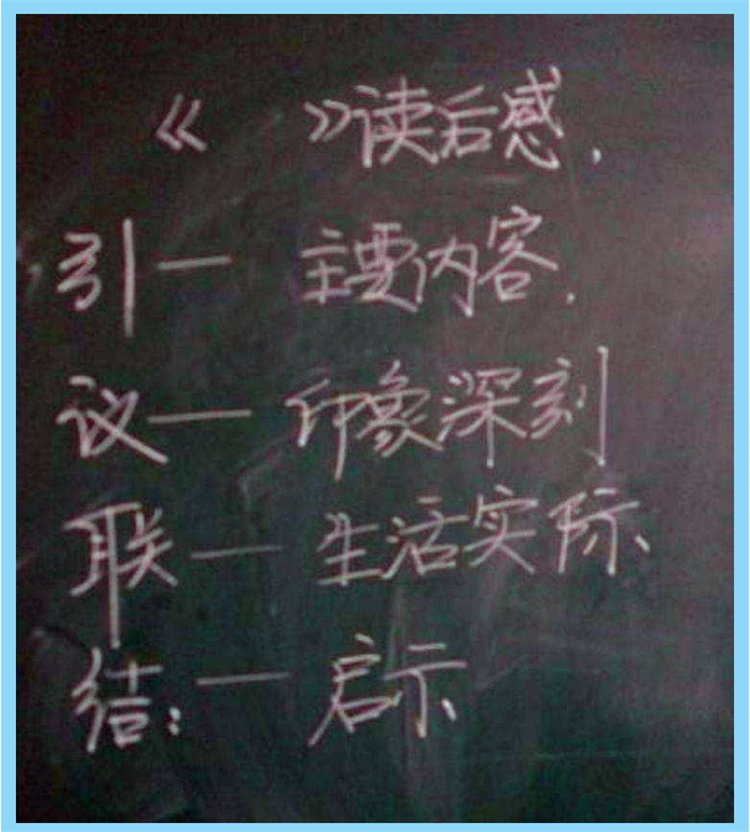 《 》读后感.
引— 主要内容.
议— 印象深刻
联— 生活实际
结:— 启示